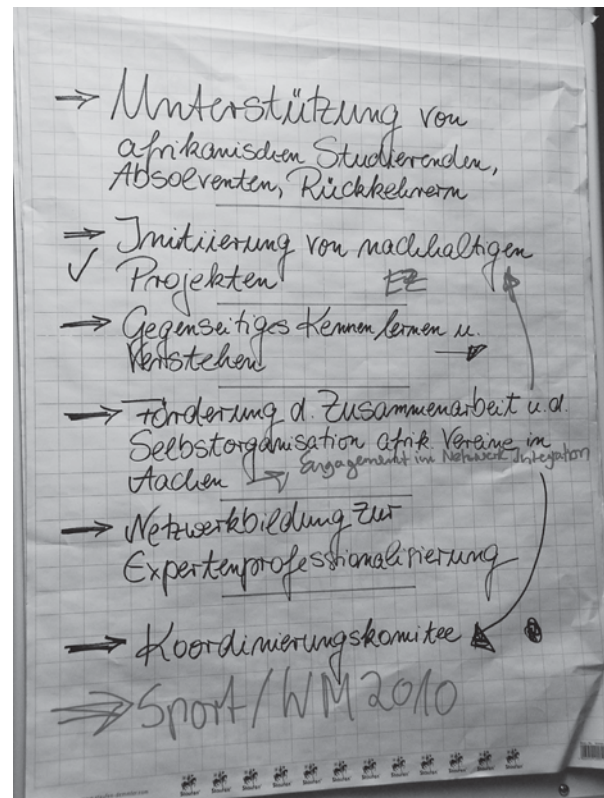 → Unterstützung von
afrikanischen Studierenden,
Absolventen, Rückkehrern
⇒ Initiierung von nachhaltigen
✓ Projekten EZ
→ Gegenseitiges Kennenlernen u.
Verstehen →
→ Förderung d. Zusammenarbeit u. d.
Selbstorganisation afrik. Vereine in
Aachen → Engagement im Netzwerk Integration
→ Netzwerkbildung zur
Expertenprofessionalisierung
→ Koordinierungskomitee
⇒ Sport/WM 2010